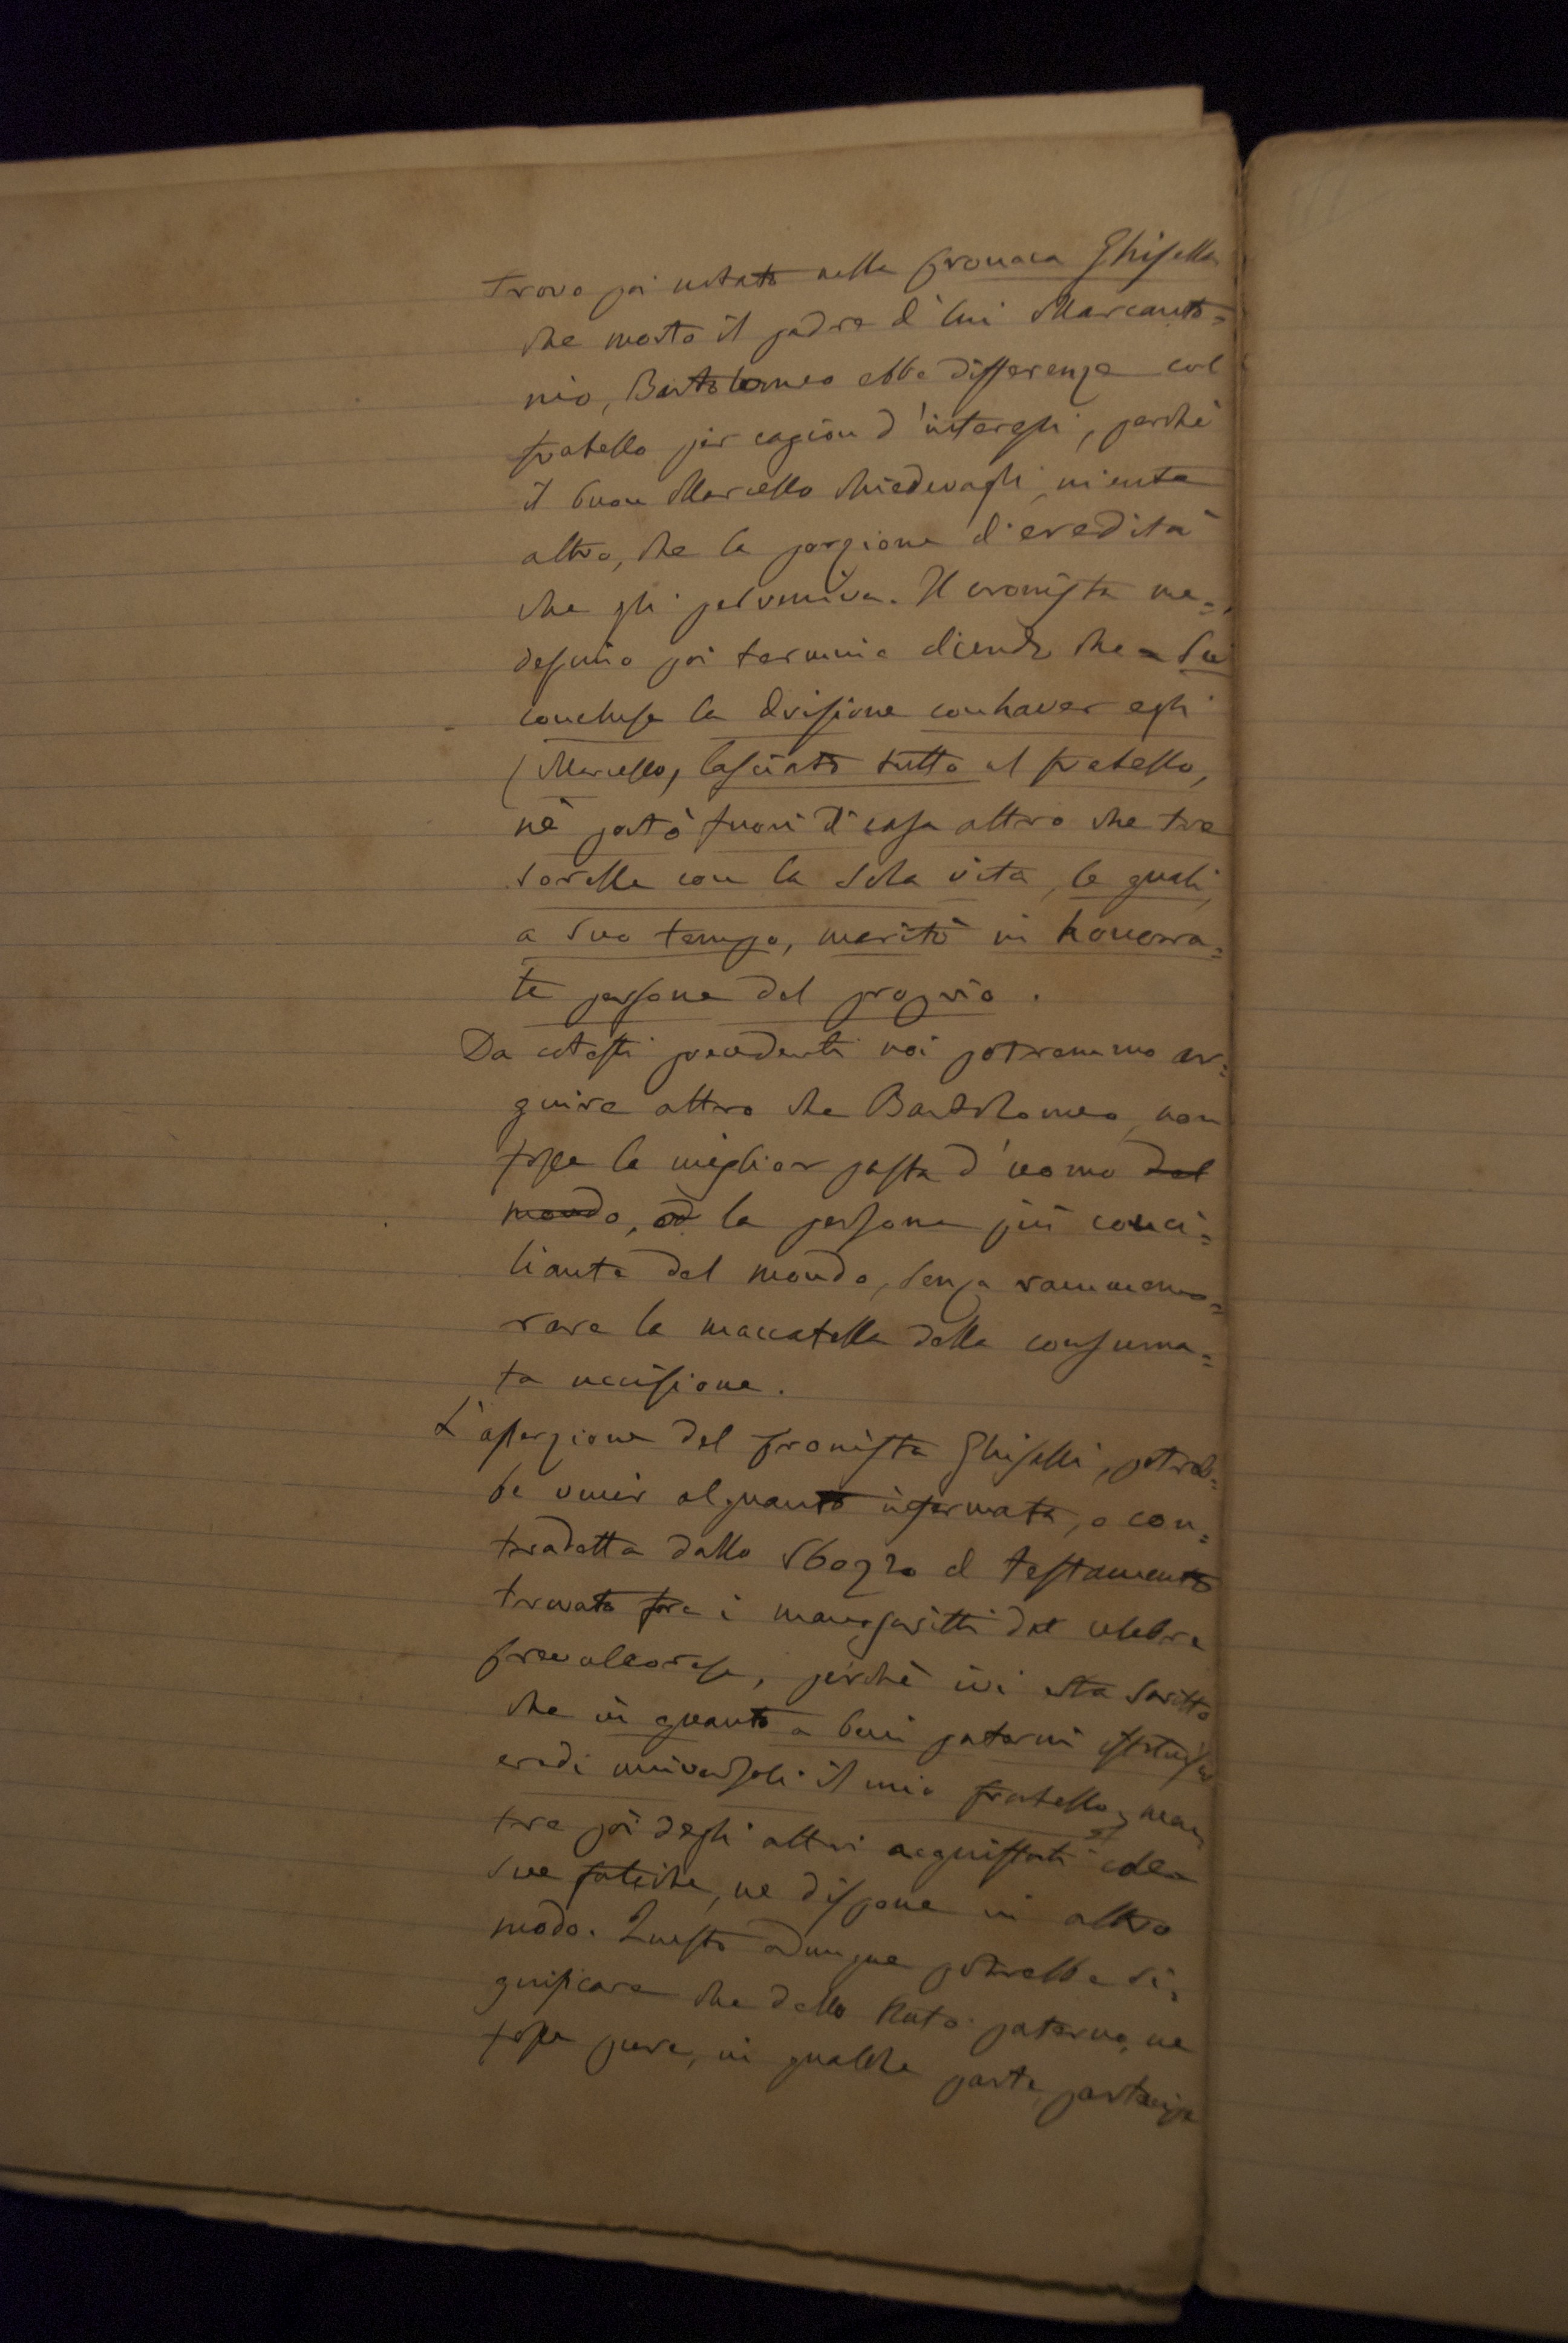 Trovo poi notato nella Cronaca Ghisella
che morto il padre di lui Marcanto=
nio, Bartolomeo ebbe differenze col
fratello per cagion d'interessi, perchè
il buon Marcello chiedevagli niente
altro, che la porzione di eredità
che gli perveniva. Il cronista me=
desimo poi termina dicendo che = Si
concluse la divisione con haver egli
(Marcello, lasciato tutto al fratello,
nè portò fuori di casa altro che tre
sorelle con la sola vita, le quali,
a suo tempo, maritò in honora=
te persone del proprio.
Da cotesti precedenti noi potremmo ar=
guire altro che Bartolomeo non
fosse la miglior pasta d'uomo del
mondo, od la persona più conci=
liante del mondo, senza rammemo=
rare la maccatella della consuma=
ta uccisione.
L'asserzione del Cronista Ghiselli, potreb=
be venir alquanto infermata, o con=
tradetta dallo sbozzo di testamento
trovato fra i manoscritti del celebre
Crevalcorese, perchè ivi sta scritto
che in quanto a beni paterni
eredi universali il mio fratello, men
tre poi degli altri acquistati colle
sue fatiche, ne dispone in altro
modo. Questo adunque potrebbe si=
gnificare che dello stato paterno, ne
fosse pure, in qualche parte